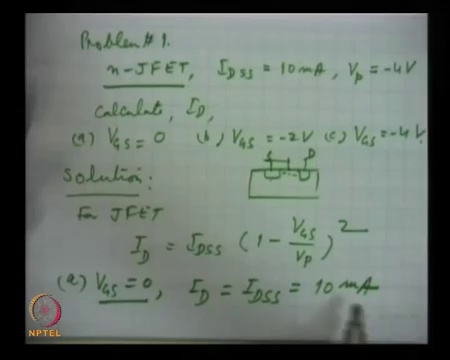 Problem # 1.
n-JFET, I_DSS = 10 mA, V_p = -4V
Calculate, I_D,
(a) V_GS = 0 (b) V_GS = -2V (c) V_GS = -4V.
Solution:
S D
For JFET
I_D = I_DSS (1 - V_GS/V_p)^2
(a) V_GS = 0, I_D = I_DSS = 10 mA
NPTEL